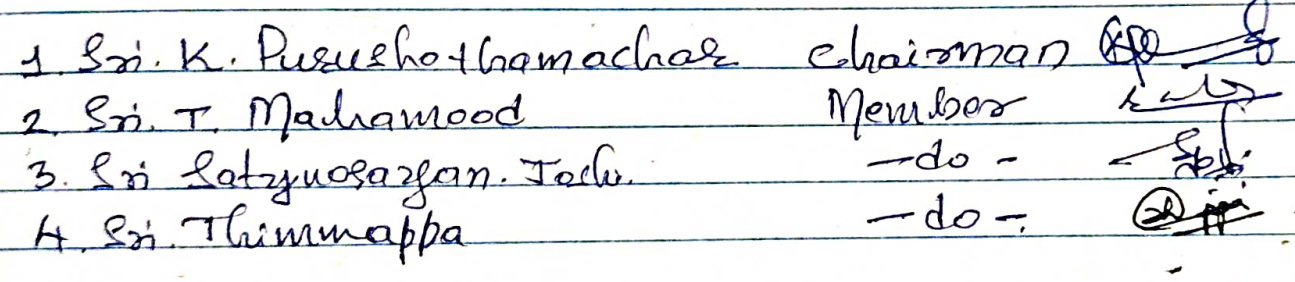 1. Sri. K. Purushothamachar Chairman
2. Sri. T. Mahamood Member
3. Sri Satyanarayan. Joshi. -do-
4. Sri. Thimmappa -do-.